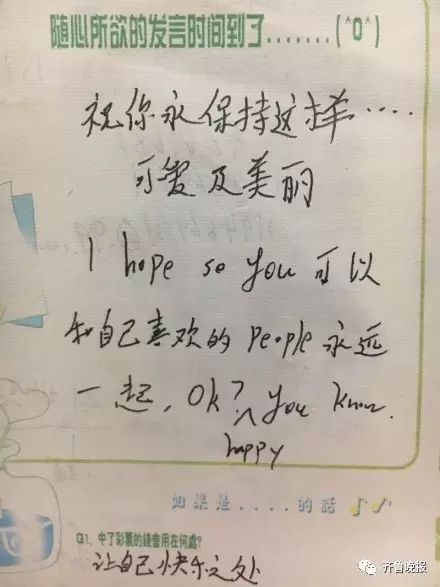 随心所欲的发言时间到了.......(^o^)
祝你永保持这样....
可爱及美丽
I hope so you 可以
和自己喜欢的 people 永远
一起, Ok? you know.
happy
如果是....的話
Q1. 中了彩票的錢會用在何處?
让自己快乐之处
齐鲁晚报